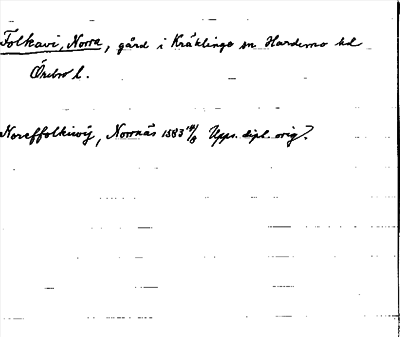 Folkavi, Norra, gård i Kräklinge sn Hardemo hd
Örebro l.
Noreffolkiwij, Norrnäs 1583 Upps. dipl. orig.